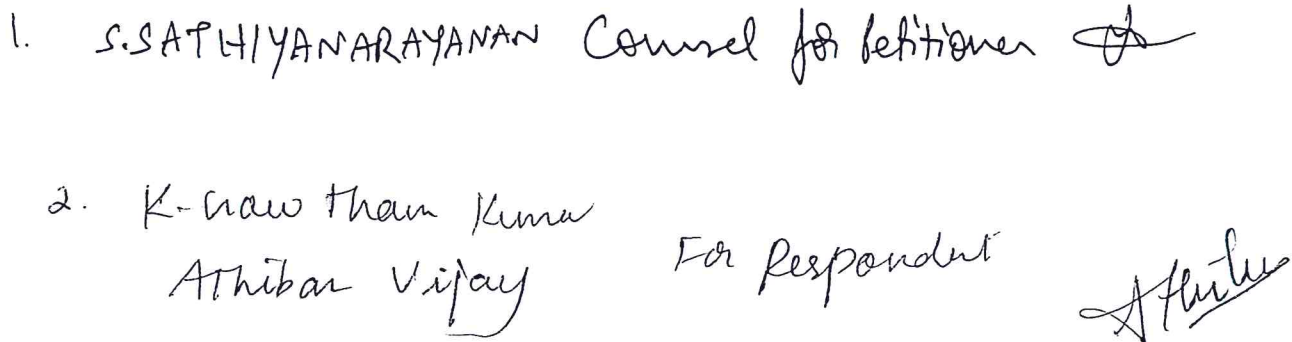 1. S.SATHIYANARAYANAN Counsel for Petitioner
2. K. Gowtham Kumar
Athiban Vijay For Respondent
Athiban